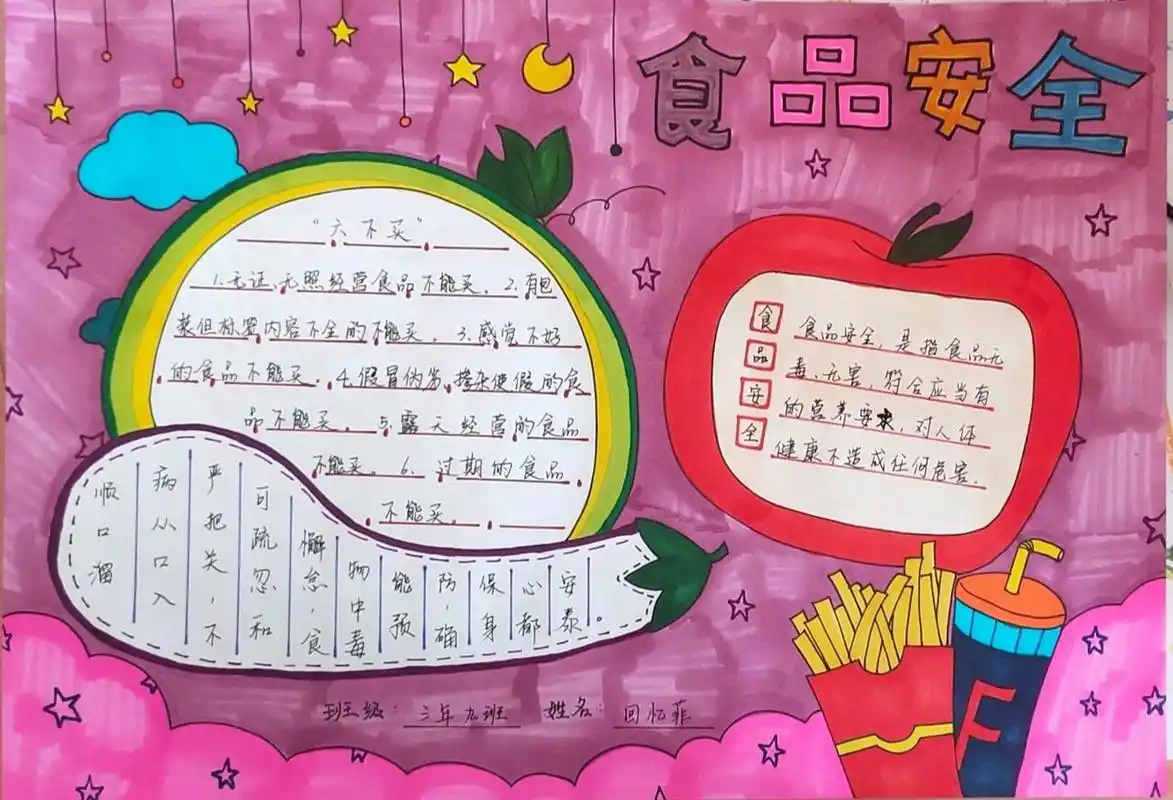 食品安全
“六不买”
1.无证、无照经营食品不能买。2.有包
装但标签内容不全的不能买。3.感觉不好
的食品不能买。4.假冒伪劣、掺杂使假的食
品不能买。5.露天经营的食品
不能买。6.过期的食品
不能买。
食品安全
食品安全,是指食品无
毒、无害,符合应当有
的营养要求,对人体
健康不造成任何危害.
顺口溜
病从口入
严把关,不
可疏忽和
懈怠,食
物中毒
能预
防,确
保身
心都
安泰。
班级:三年九班 姓名:回忆菲
F